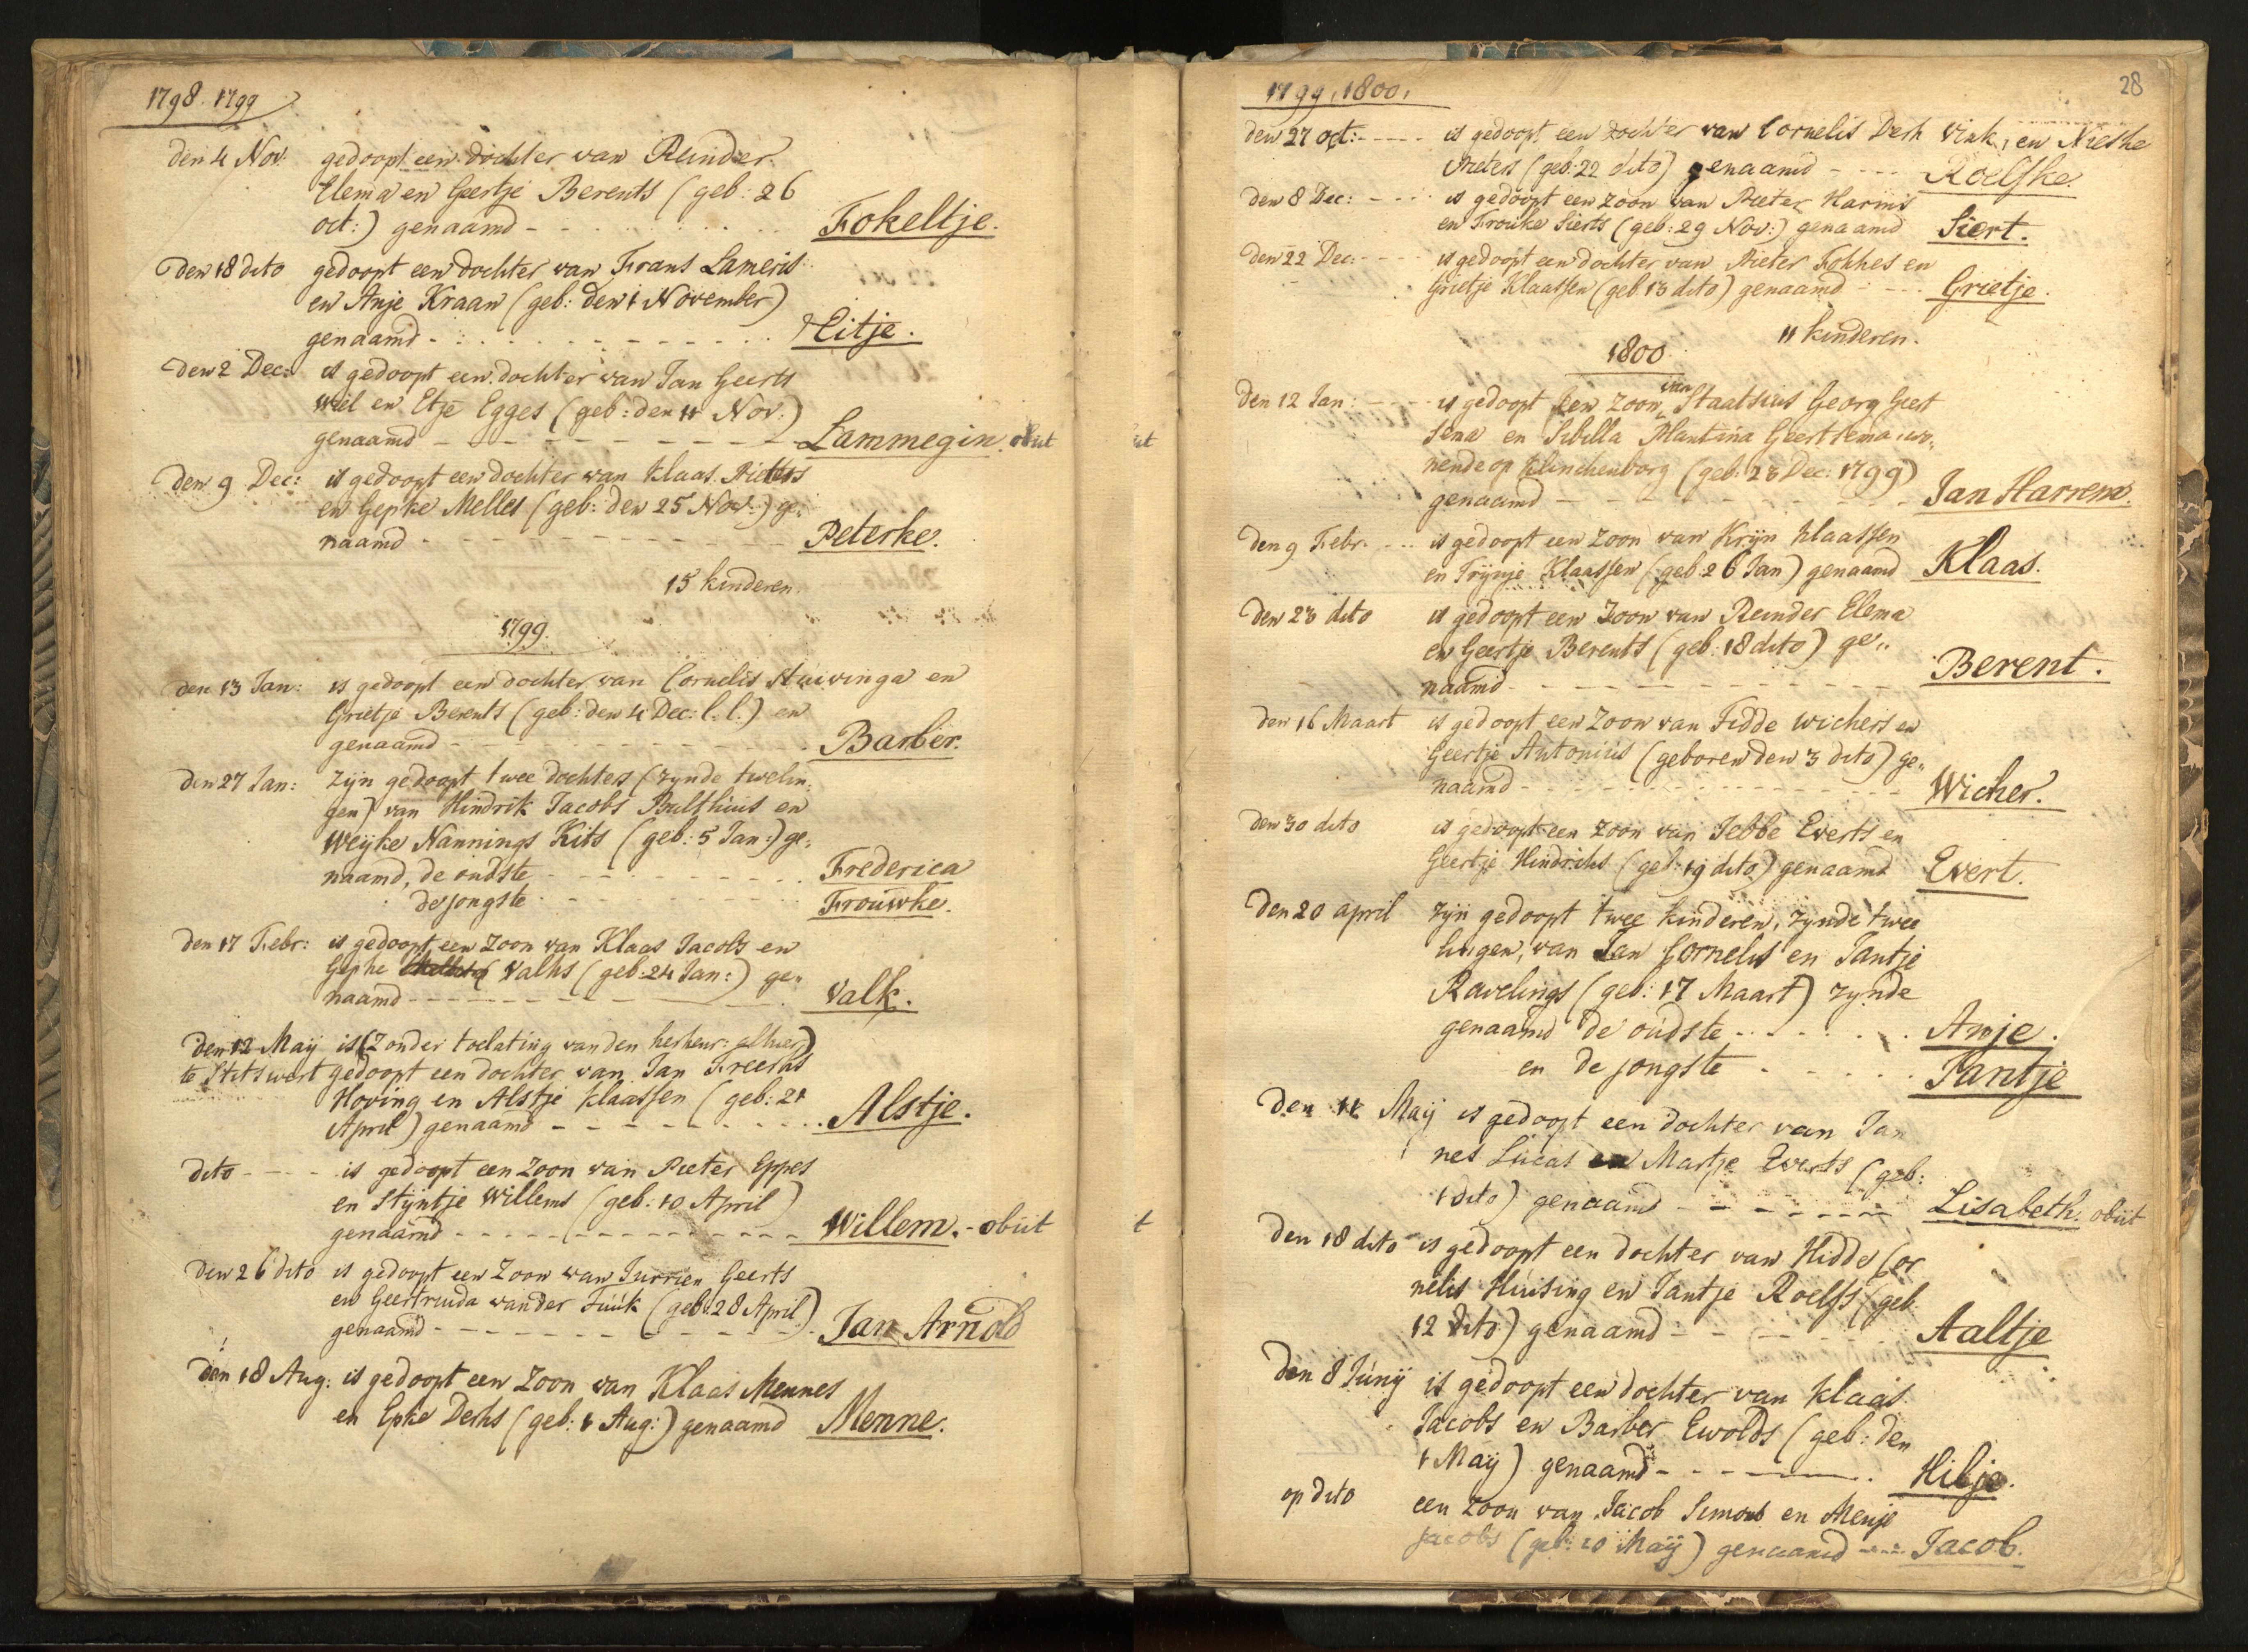 1798. 1799
den 4 Nov: gedoopt een dochter van Reinder
Elema en Geertje Berents (geb: 26
oct:) genaamd - - - Fokeltje.
den 18 dito gedoopt een dochter van Frans Lameris
en Anje Kraan (geb: den 1 November)
genaamd - - - Eitje.
den 2 Dec: is gedoopt een dochter van Jan Geerts
Wiel en Etje Egges (geb: den 11 Nov.)
genaamd - - - Lammegin. obiit
den 9 Dec: is gedoopt een dochter van Klaas Pieters
en Gepke Melles (geb: den 25 Nov:) ge„
naamd - - - Peterke.
15 kinderen.
1799.
den 13 Jan: is gedoopt een dochter van Cornelis Stuivinga en
Grietje Berents (geb: den 4 Dec: l. l.) en
genaamd - - - Barber.
den 27 Jan: zijn gedoopt twee dochters (zynde twelin„
gen) van Hindrik Jacobs Bulthuis en
Weyke Nannings Kits (geb: 5 Jan:) ge„
naamd, de oudste - - - Frederica
de jongste - - - Frouwke.
den 17 Febr: is gedoopt een Zoon van Klaas Jacobs en
Gepke Valks (geb: 24 Jan:) ge„
naamd - - - Valk.
den 12 May is (Zonder toelating van den kerkenr: alhier)
te Stitswert gedoopt een dochter van Jan Freerks
Hoving en Alstje Klaassen (geb: 21
April) genaamd - - - Alstje.
dito - - - is gedoopt een Zoon van Pieter Eppes
en Stijntje Willems (geb: 10 April)
genaamd - - - Willem. - obiit
den 26 dito is gedoopt een Zoon van Jurrien Geerts
en Geertruida van der Tuuk (geb: 28 April)
genaamd - - - Jan Arnold
den 18 Aug: is gedoopt een Zoon van Klaas Mennes
en Epke Derks (geb: 1 Aug:) genaamd Menne.
1799, 1800.
28
den 27 oct: - - - is gedoopt een dochter van Cornelis Derk Vink, en Nieske
Pieters (geb: 22 dito) genaamd - - - Roelfke.
den 8 Dec: - - - is gedoopt een zoon van Pieter Harms
en Frouke Sierts (geb: 29 Nov:) genaamd Siert.
den 22 Dec: - - - is gedoopt een dochter van Pieter Fokkes en
Grietje Klaassen (geb. 13 dito) genaamd - - - Grietje.
11 kinderen.
1800.
den 12 Jan: - - - is gedoopt een zoon van Staatsius Georg Geert
sema en Sibilla Plantina Geertsema, wo„
nende op Klinckenborg (geb: 23 Dec: 1799)
genaamd - - - Jan Harrem.
den 9 Febr. - - - is gedoopt een Zoon van Krijn Klaassen
en Trijnje Klaassen (geb. 26 Jan) genaamd Klaas.
den 23 dito is gedoopt een Zoon van Reinder Elema
en Geertje Berents (geb: 18 dito) ge„
naamd - - - Berent.
den 16 Maart is gedoopt een Zoon van Fidde Wichers en
Geertje Antonius (geboren den 3 dito) ge„
naamd - - - Wicher.
den 30 dito is gedoopt een Zoon van Jebbe Everts en
Geertje Hindriks (geb: 19 dito) genaamd Evert.
den 20 april zijn gedoopt twee kinderen, zynde twee
lingen, van Jan Cornelis en Jantje
Ravelings (geb: 17 Maart) zynde
genaamd de oudste - - - Anje.
en de jongste - - - Jantje
den 11 May is gedoopt een dochter van Jan
nes Lucas en Martje Everts (geb:
1 dito) genaamd - - - Lisabeth. obiit
den 18 dito is gedoopt een dochter van Hidde Cor
nelis Huising en Jantje Roelfs (geb.
12 dito) genaamd - - - Aaltje
den 8 Junij is gedoopt een dochter van Klaas
Jacobs en Barber Ewolds (geb: den
1 Maij) genaamd - - - Hilje.
op dito een Zoon van Jacob Simons en Menje
Jacobs (geb: 10 Maij) genaamd - - - Jacob.